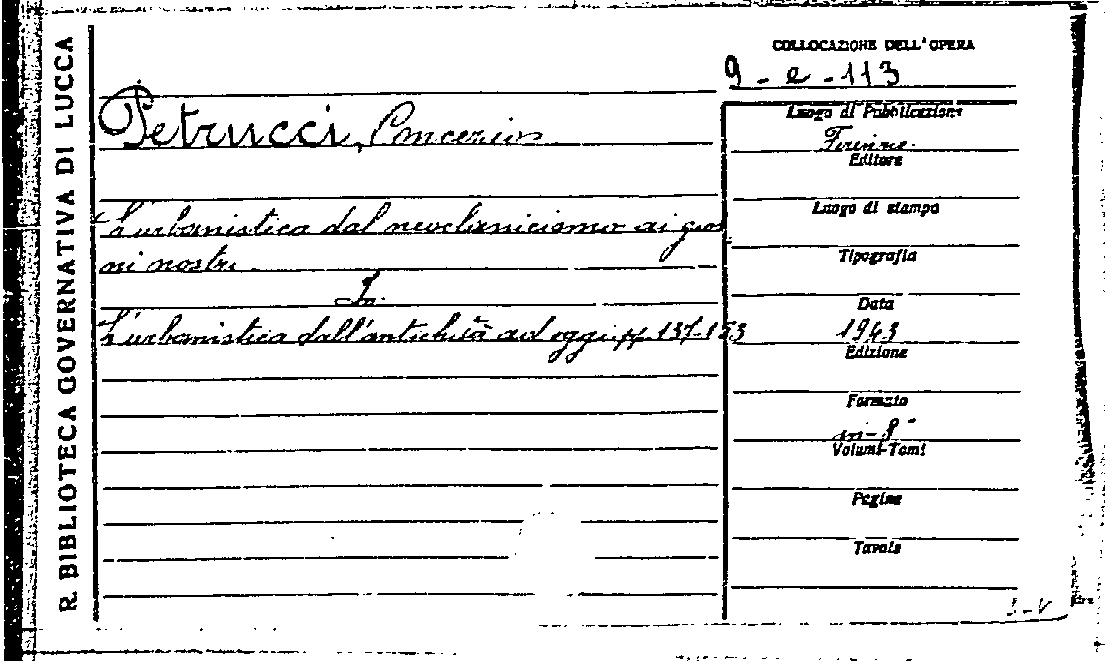 R. BIBLIOTECA GOVERNATIVA DI LUCCA
COLLOCAZIONE DELL'OPERA
9 - e - 113
Petrucci,
L'urbanistica dal neoclassicismo ai gior
ni nostri.
In.
L'urbanistica dall'antichità ad oggi. pp. 137-153
Luogo di Pubblicazione
Firenze.
Editore
Luogo di stampa
Tipografia
Data
1943
Edizione
Formato
in-8°
Volumi-Tomi
Pagine
Tavole